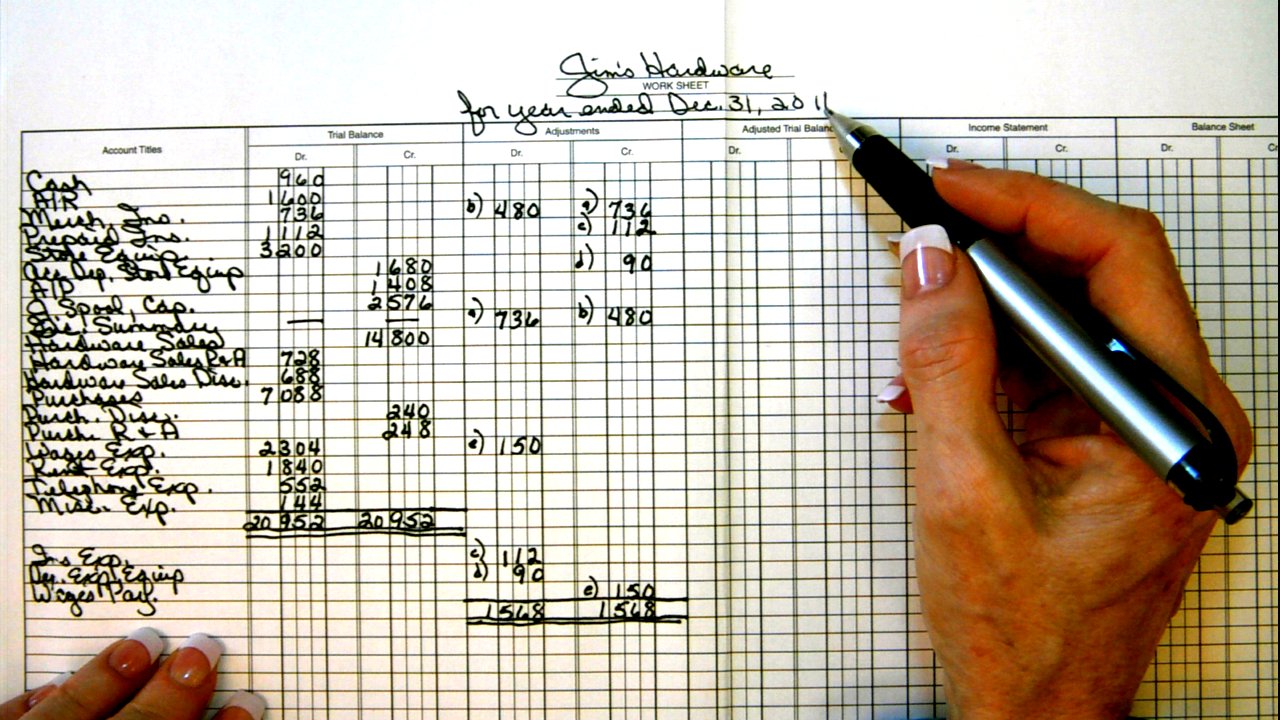 Jim's Hardware
WORK SHEET
for year ended Dec. 31, 201
Account Titles Trial Balance Adjustments Adjusted Trial Balanc Income Statement Balance Sheet
Dr. Cr. Dr. Cr. Dr. Dr. Cr. Dr. C
Cash 960
A/R 1600
Merch. Inv. 736 b) 480 a) 736
Prepaid Ins. 1112 c) 112
Store Equip. 3200
Acc. Dep. Store Equip 1680 d) 90
A/P 1408
J. Spool, Cap. 2576
Inc. Summary — — a) 736 b) 480
Hardware Sales 14800
Hardware Sales R&A 728
Hardware Sales Disc. 688
Purchases 7088
Purch. Disc. 240
Purch. R & A 248
Wages Exp. 2304 e) 150
Rent Exp. 1840
Telephone Exp. 552
Misc. Exp. 144
20952 20952 
Ins Exp. c) 112
Dep. Exp. Equip d) 90
Wages Pay. e) 150
1568 1568